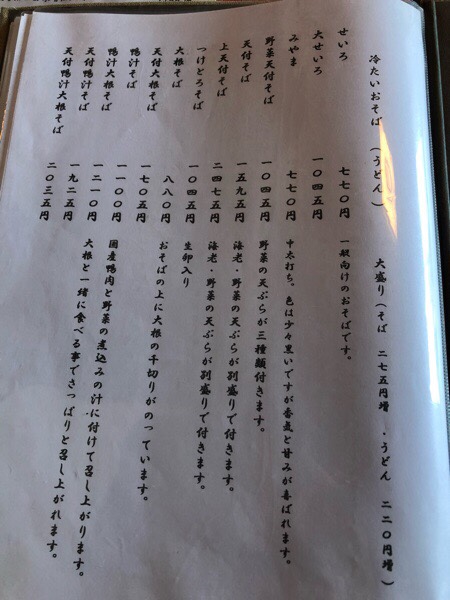 冷たいおそば （うどん） 大盛り（そば 二七五円増 ・うどん 二二〇円増）
せいろ 七七〇円 一般向けのおそばです。
大せいろ 一〇四五円
みやま 七七〇円 中太打ち、色は少々黒いですが香気と甘みが喜ばれます。
野菜天付そば 一〇四五円 野菜の天ぷらが三種類付きます。
天付そば 一五九五円 海老・野菜の天ぷらが別盛りで付きます。
上天付そば 二四七五円 海老・野菜の天ぷらが別盛りで付きます。
つけとろそば 一〇四五円 生卵入り
大根そば 八八〇円 おそばの上に大根の千切りがのっています。
天付大根そば 一七〇五円
鴨汁そば 一一〇〇円 国産鴨肉と野菜の煮込みの汁に付けて召し上がります。
鴨汁大根そば 一二一〇円 大根と一緒に食べる事でさっぱりと召し上がれます。
天付鴨汁そば 一九二五円
天付鴨汁大根そば 二〇三五円